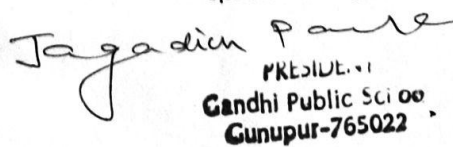 Jagadish
PRESIDENT
Gandhi Public School
Gunupur-765022